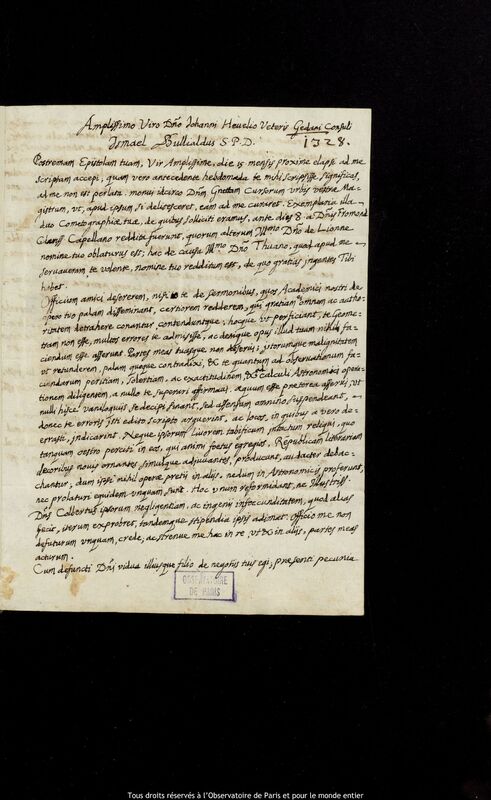 Amplissimo Viro Dño Johanni Hevelio Veteris Gedani Consuli
Ismael Bullialdus S. P. D.
1328.
Postremam Epistolam tuam, Vir Amplissime, die 15 mensis proxime elapsi ad me
scriptam accepi, quam vero antecedente hebdomada te mihi scripsisse significas,
ad me non est perlata. monui idcirco Dñm Cursorum urbis vestræ Ma-
gistrum, ut, apud ipsum si delitesceret, eam ad me curaret. Exemplaria illa
duo Cometographiæ tuæ, de quibus solliciti eramus, ante dies 8 a Dño Fromond
Capellano reddita fuerunt, quorum alterum Illmo Dño de Lionne
nomine tuo oblaturus est; hac de causa Illmo Dño Thuano, quod apud me
servaveram te volente, nomine tuo redditum est, de quo gratias ingentes Tibi
habet.
Officium amici desererem, nisi te de sermonibus, quos Academici nostri de
opere tuo palam disseminant, certiorem redderem, qui gratiam omnem ac autho-
ritatem detrahere conantur, contenduntque; hocque ut perficiant, te Geome-
tram non esse, multos errores te admisisse, ac denique opus illud tuum nihili fa-
ciendum esse asserunt. Partes meas tuasque non deserui; istorumque malignitatem
ut retunderem, palam quoque contradixi, & te quantum ad observationum fa-
ciendarum peritiam, solertiam, ac exactitudinem, & calculi Astronomici opera-
tionem diligentem, a nullo te superari affirmavi. æquum esse præterea asserui, ut
nulli hisce vaniloquiis se decipi sinant, sed assensum omnino suspendant,
donec te erroris isti edito scripto arguerint, ac locos, in quibus a vero de-
errasti, indicarint. Neque ipsorum livorem tabificum intactum reliqui, quo
tanquam oestro perciti in eos, qui animi foetus egregios, Rempublicam literariam
decoribus novis ornantes simulque adjuvantes, producunt, audacter debac-
chantur, dum ipsi nihil operæ pretii in aliis, nedum in Astronomicis proferunt,
nec prolaturi equidem unquam sunt. Hoc unum reformidant, ne Illustriss.
Dñs Colbertus ipsorum negligentiam, ac ingenii infoecunditatem, quod alias
fecit, iterum exprobret, tandemque stipendia ipsis adimat. Officio me non
defuturum unquam, crede, ac strenue me hac in re, ut & in aliis, partes meas
acturum.
Cum defuncti Dñi vidua illiusque filio de negotiis tuis egi; præsenti pecunia
OBSERVATOIRE
DE PARIS
Tous droits réservés à l'Observatoire de Paris et pour le monde entier